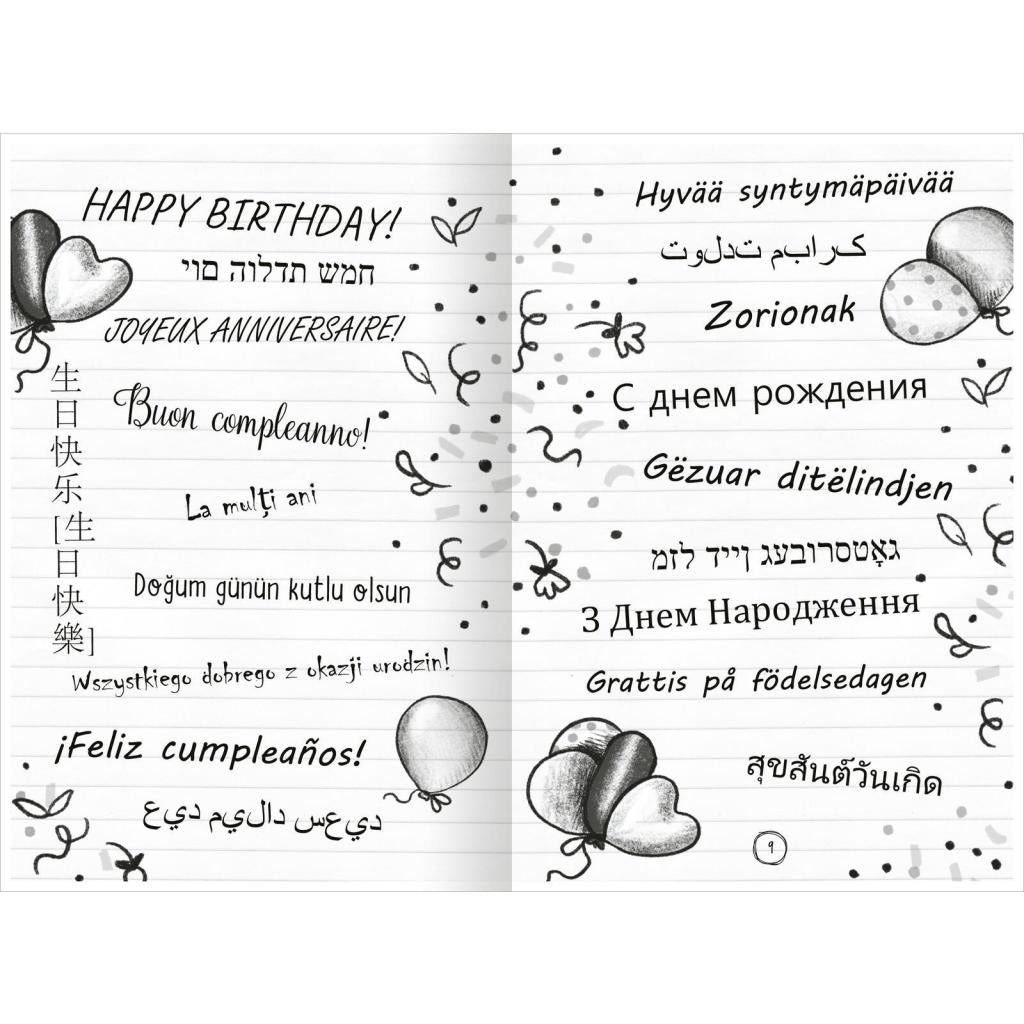 HAPPY BIRTHDAY!
יום הולדת שמח
JOYEUX ANNIVERSAIRE!
生日快乐[生日快樂]
Buon compleanno!
La mulţi ani
Doğum günün kutlu olsun
Wszystkiego dobrego z okazji urodzin!
¡Feliz cumpleaños!
عيد ميلاد سعيد
Hyvää syntymäpäivää
تولدت مبارک
Zorionak
С днем рождения
Gëzuar ditëlindjen
מזל דיין געבורסטאָג
З Днем Народження
Grattis på födelsedagen
สุขสันต์วันเกิด
9